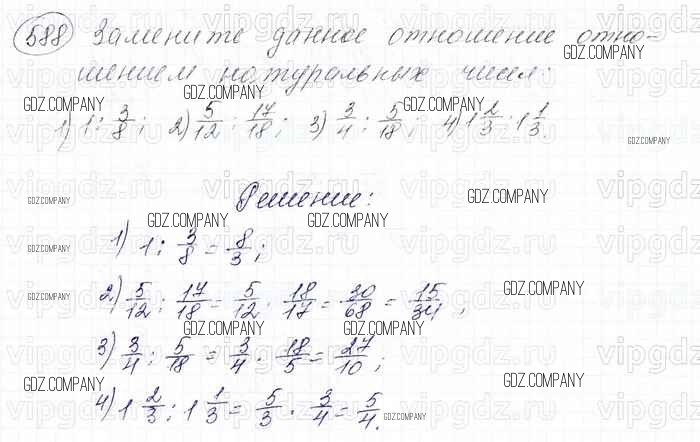 588 Замените данное отношение отно-
шением натуральных чисел:
1) 1 : 3/8; 2) 5/12 : 17/18; 3) 3/4 : 5/18; 4) 1 2/3 : 1 1/3.
Решение:
1) 1 : 3/8 = 8/3;
2) 5/12 : 17/18 = 5/12 · 18/17 = 30/68 = 15/34;
3) 3/4 : 5/18 = 3/4 · 18/5 = 27/10;
4) 1 2/3 : 1 1/3 = 5/3 · 3/4 = 5/4.
GDZ.COMPANY
vipgdz.ru